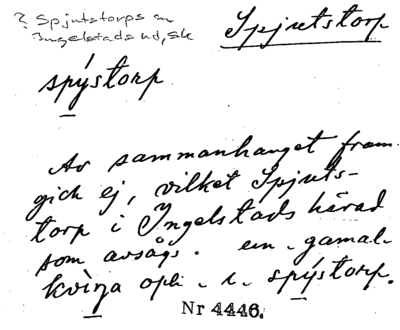 ? Spjutstorps sn
Ingelstads hd, Sk
Spjutstorp
spýstorp
Av sammanhanget fram-
gick ej, vilket Spjuts-
torp i Ingelstads härad
som avsågs. en - gamal-
kvìŋa opli - i - spýstorp.
Nr 4446.